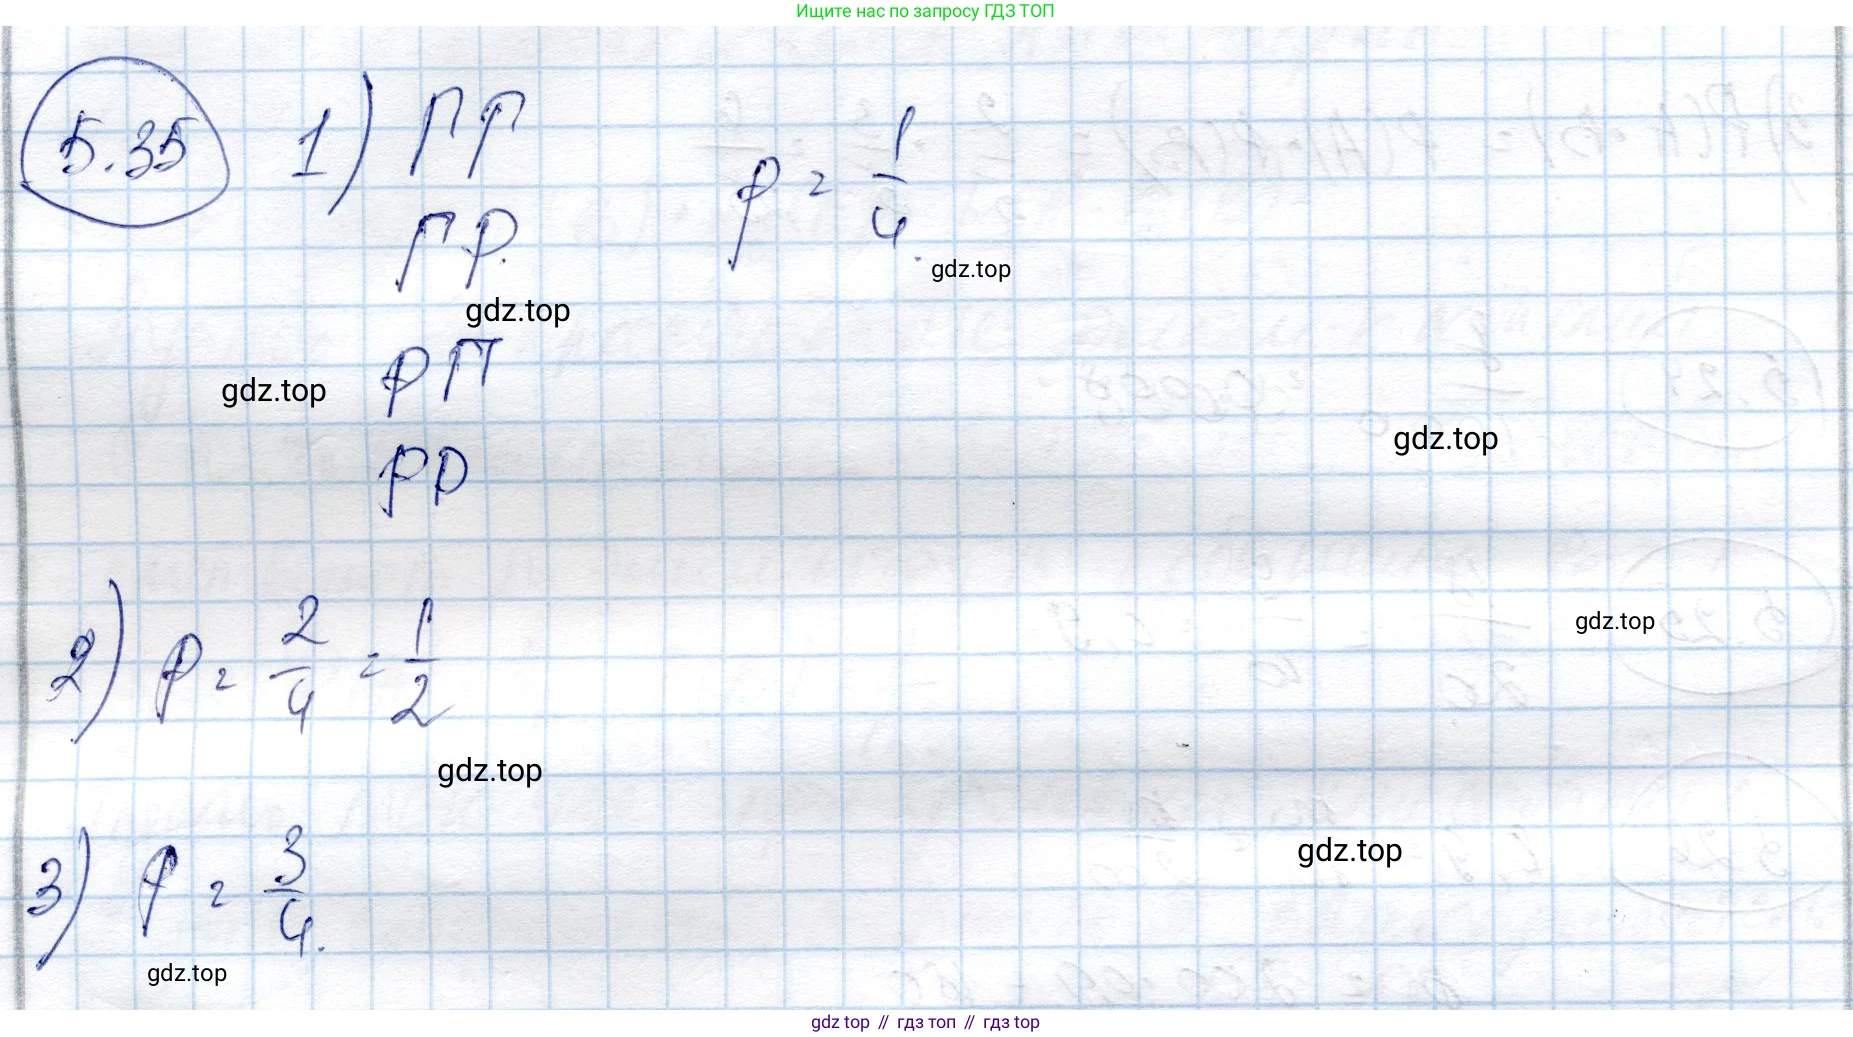 Ищите нас по запросу ГДЗ ТОП
5.35 1) ПП p = 1/4
ПР.
gdz.top
gdz.top
РП
gdz.top
gdz.top
РР
2) p = 2/4 = 1/2
gdz.top
gdz.top
3) p = 3/4.
gdz.top
gdz.top
gdz top // гдз топ // гдз top